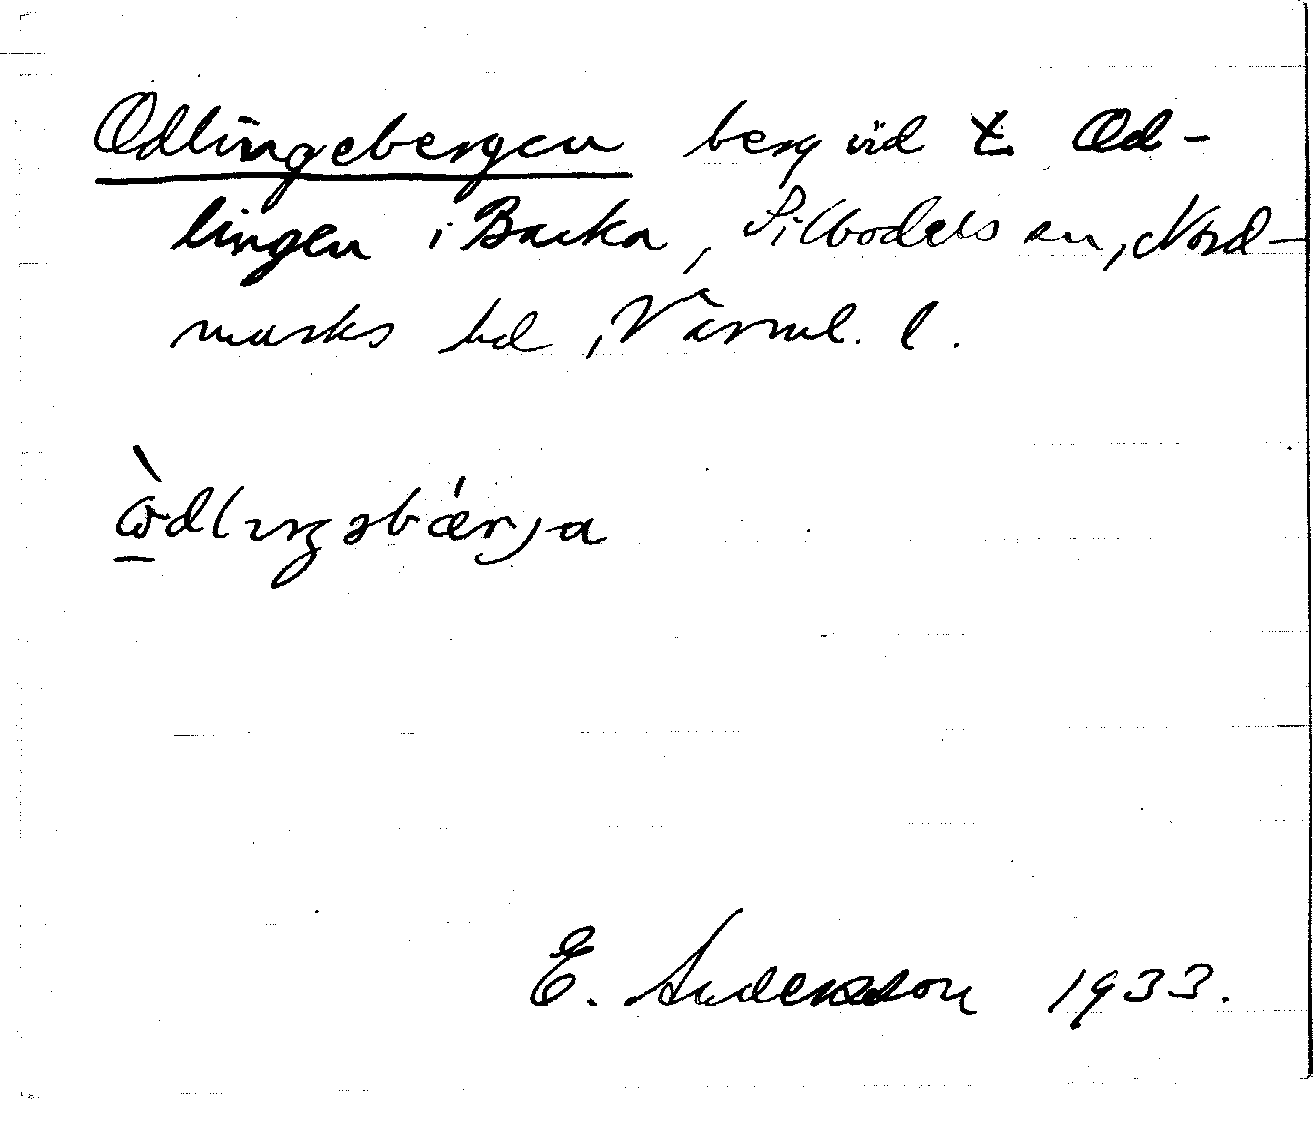 Odlingebergen berg vid t. Od-
lingen i Backa, Silbodals sn, Nord-
marks hd, Värml. l.
E. Andersson 1933.